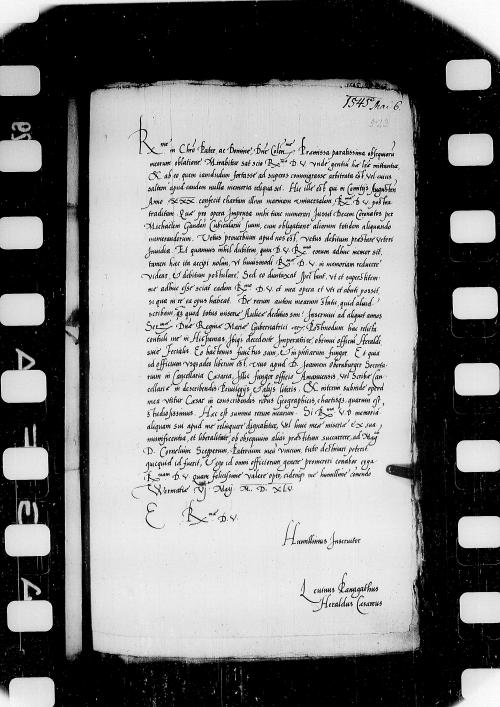 1545 Mai 6
Rme in Chro Pater ac Domine, Dne Colme. Premissa paratissima obsequiorum
meorum oblatione. Mirabitur sat scio Rma D. V. unde gentium hae literae emittantur
ab eo quem iamdudum fortasse ad superos commigrasse arbitrata est, vel cuius
saltem apud eandem nulla memoria reliqua sit. Hic ille est qui in Comitijs Augusten
Anno XXX confecit chartam illam marinam universalem, Rmae D. V. postea
traditam. Qua pro opera impensa mihi tunc numerari iussit decem Coronatos per
Michaelem Cubicularium suum, cum obligatione aliorum totidem aliquando
numerandorum. Vetus proverbium apud nos est, vetus debitum praestare veteri
Invidia. Et quamvis nihil dubitem quin D. V. Rma eorum adhuc memor sit,
tamen hic ita accipi nolim, ut huiusmodi Rmae D. V. in memoriam reducere
videar, et debitum postulare. Sed eo duntaxat spectant, ut et superstitem
me adhuc esse sciat eadem Rma D. V. et mea opera et uti et abuti possit,
si qua in re ea opus habeat. De rerum autem mearum statu, quid aliud
scribam, quod totus miseriae Aulicae deditus sum. Inservivi ad aliquot annos
Sermae Dnae Reginae Mariae Gubernatrici etc. Postmodum hac relicta
contuli me in Hispanias. Ibique decedente Imperatrice, obtinui officium Heraldi
sive Fecialis. Eo hactenus functus sum,
ad officium vsquades liberum est, vivo apud D. Joannem Obernburger Secreta-
rium in Cancellaria Caesarea, Illic fungor officio Amanuensis, vel Scribae Can-
cellariae in describendis Privilegijs et alijs literis. Et interim subinde opera
mea utitur Caesar in conscribendis rebus Geographicis, chartisque, quarum est
studiosissimus. Haec est summa rerum mearum. Si Rma V. D. memoria
aliquam sui apud me relinquere dignabitur, vel huic meae miseriae ex sua
munificentia, et liberalitate, ob obsequium alias praestitum succurrere, ad Magcum
D. Cornelium Scepperum, Patronum meum unicum, tuto destinari poterit
quicquid id fuerit, Ego id omni officiorum genere promereri conabor erga
Rmam D. V. quam felicissime valere opto, eidemque me humillime commendo
Wormatiae Vj Maij M. D. XLV
E. Rmae D. V.
Humillimus Inservitor
Levinus Panagathus
Heraldus Caesareus